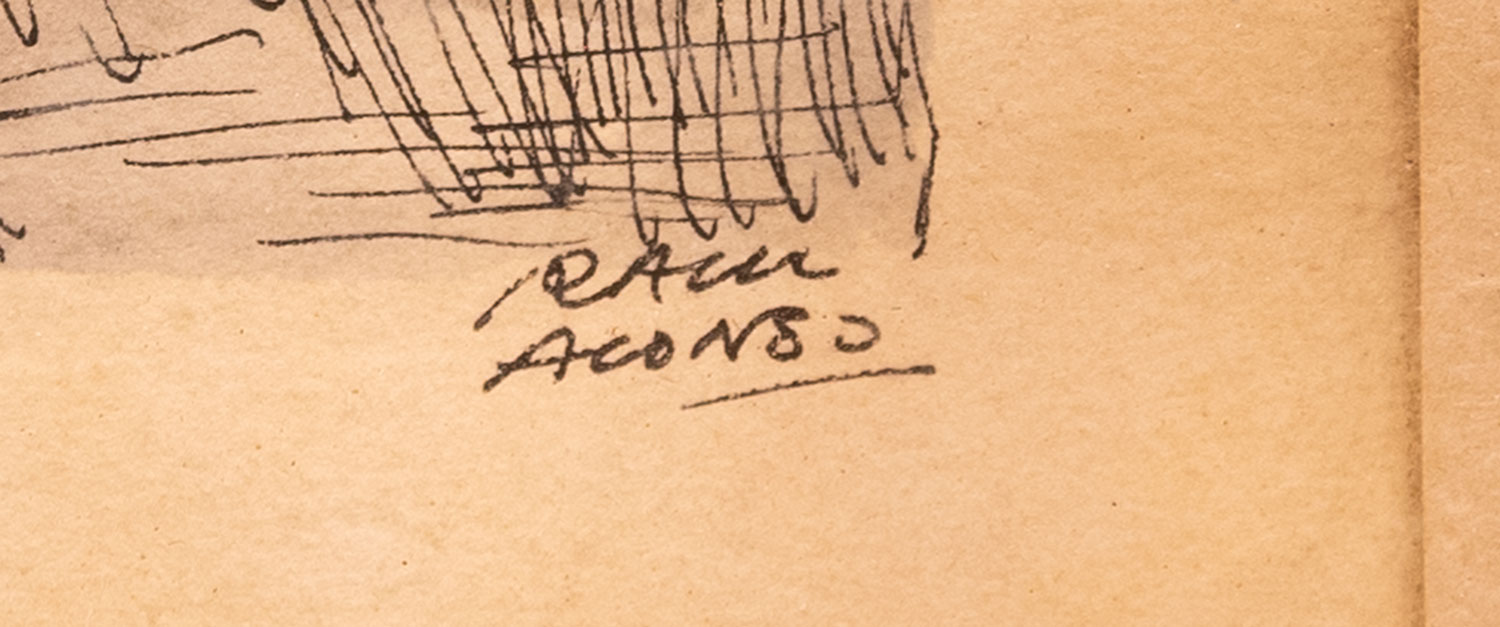 RAUL
ALONSO